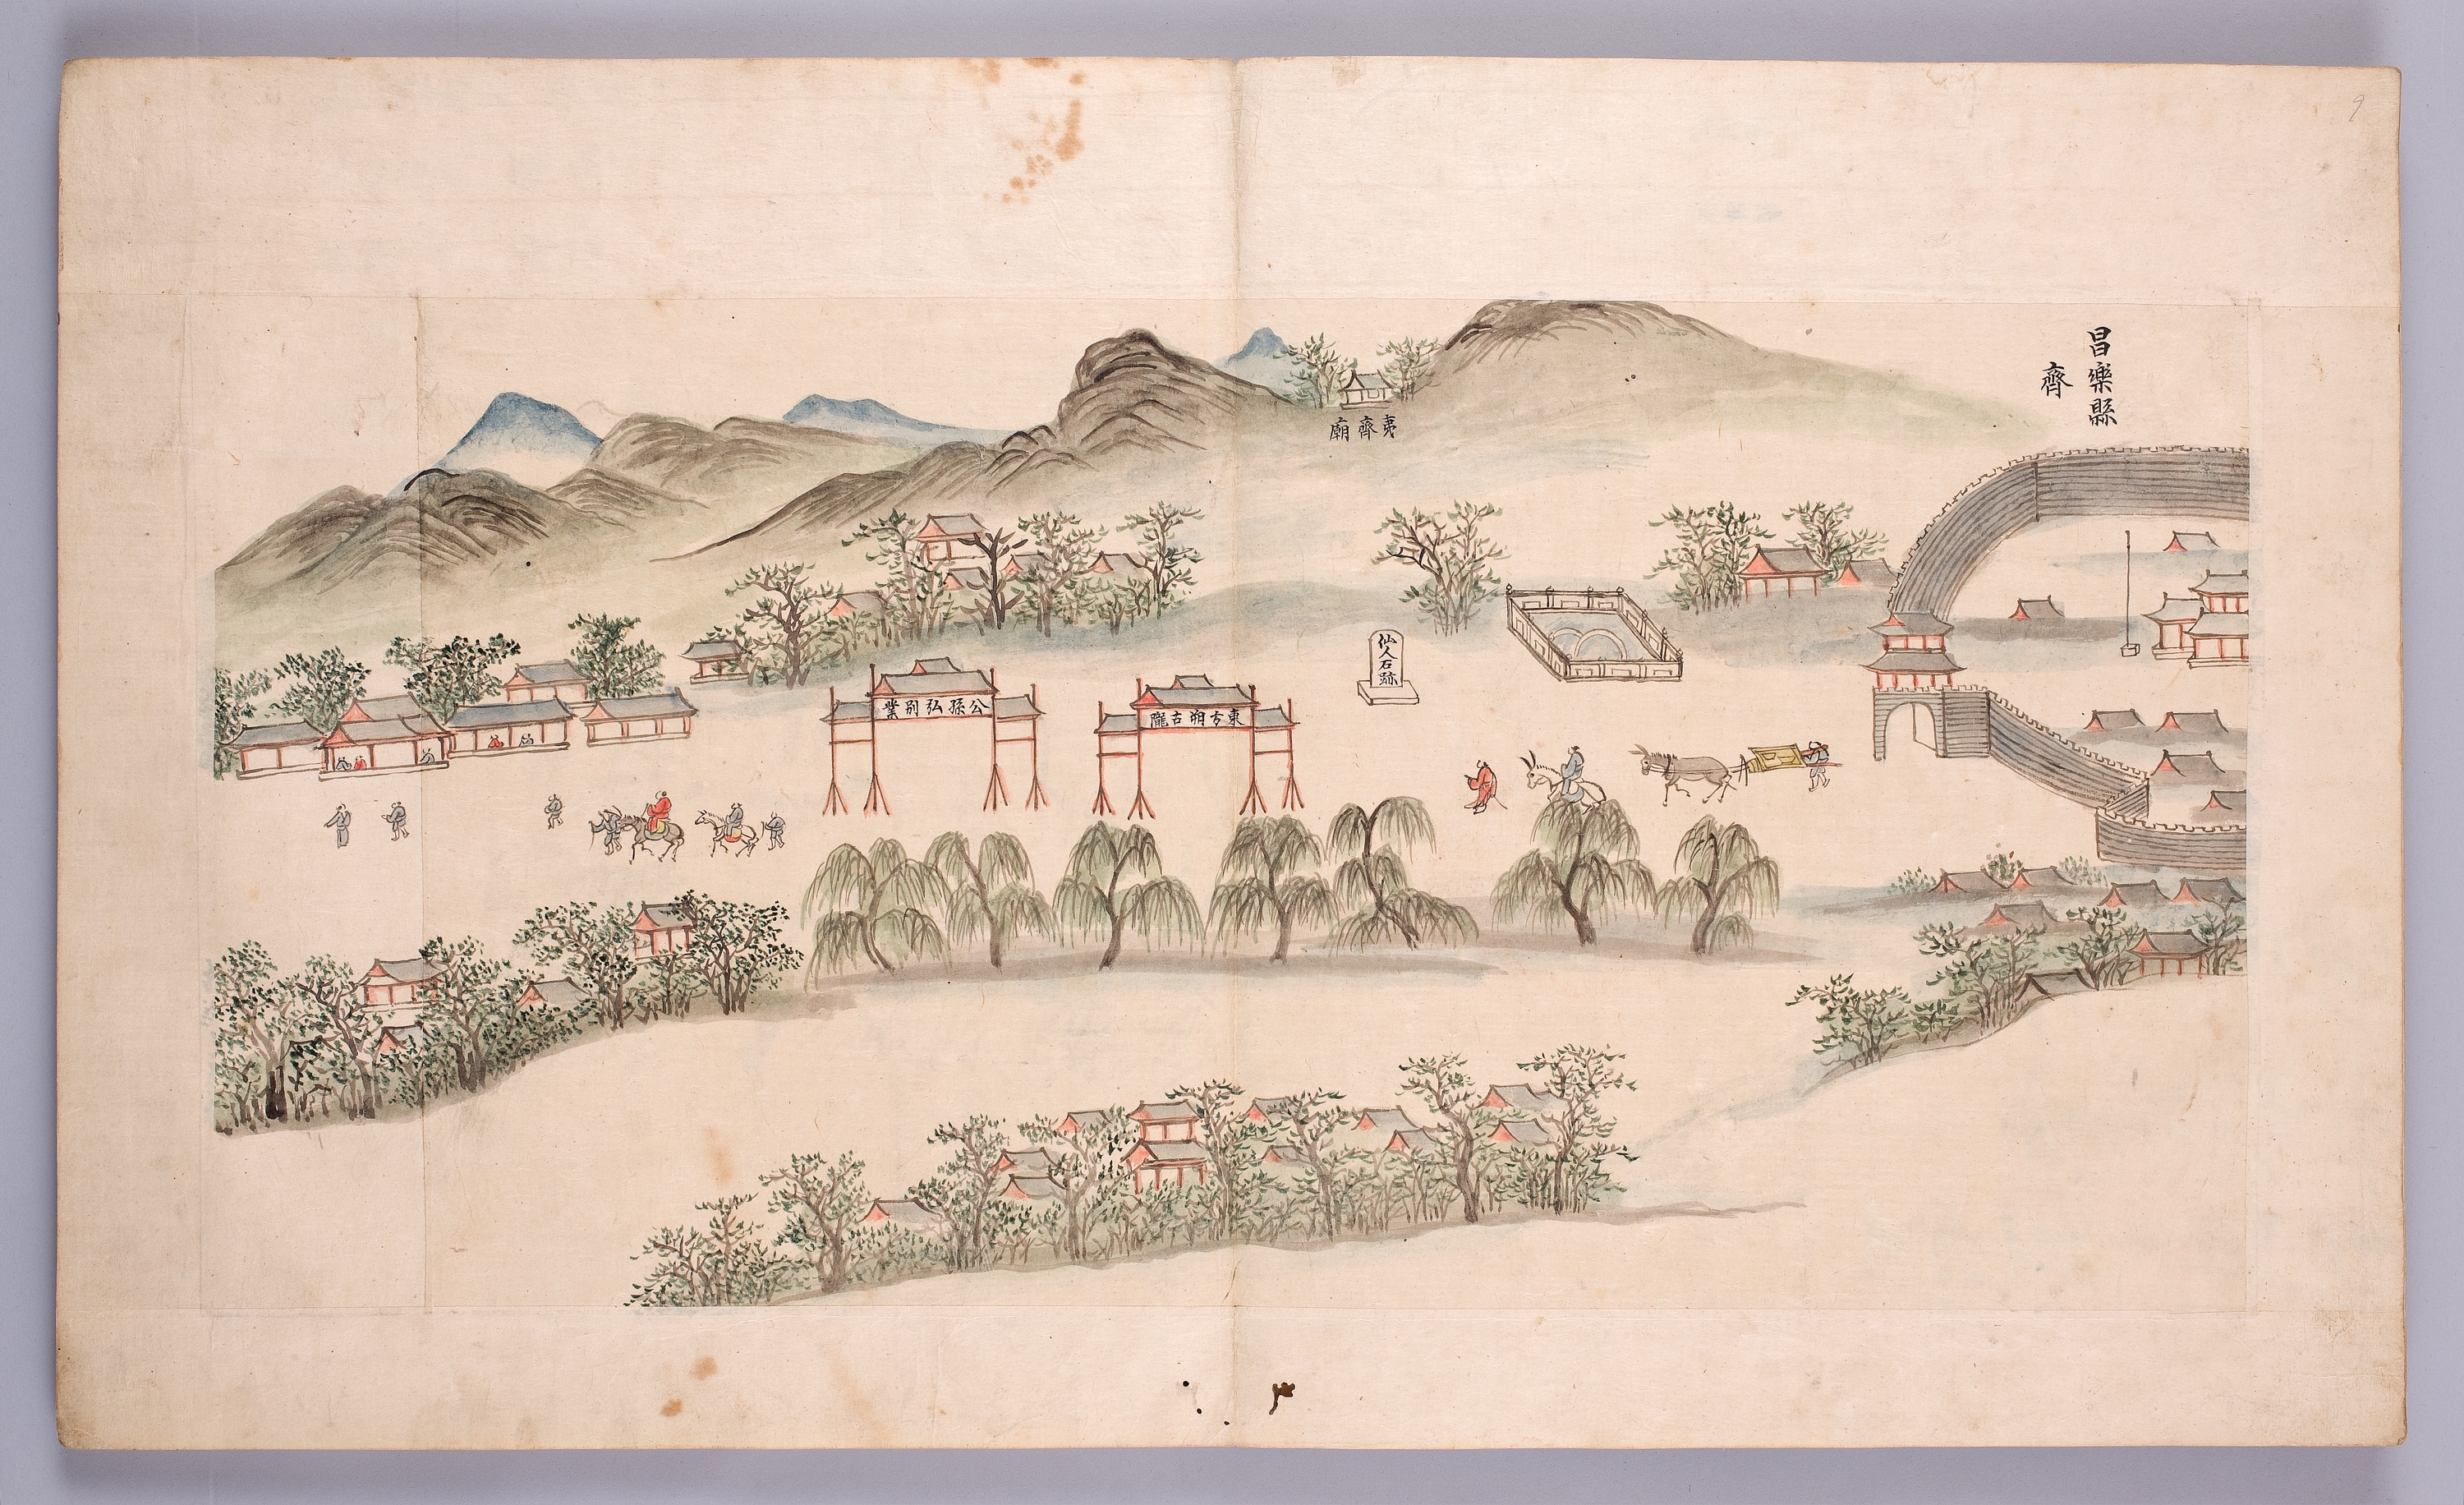 昌樂縣
齊
夷齊廟
仙人石跡
東方朔古隴
公孫弘別業
9